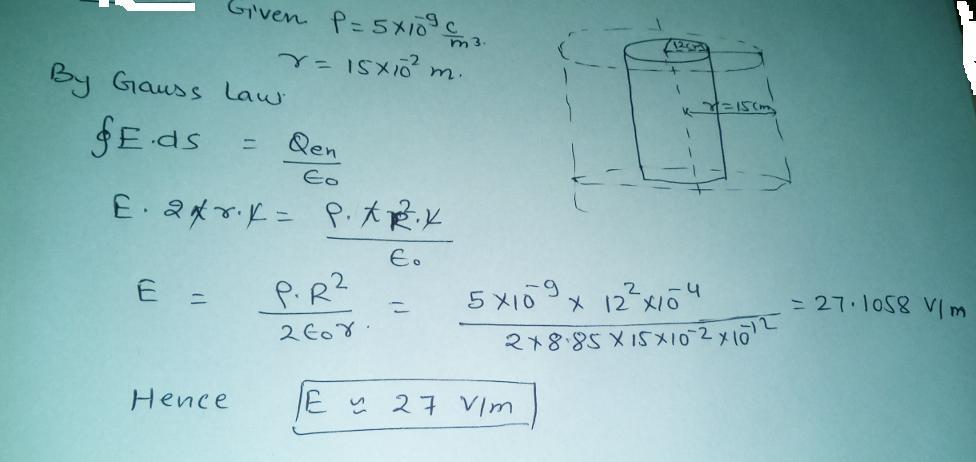 Given ρ = 5×10⁻⁹ c/m³.
r = 15×10⁻² m.
12cm
r=15cm
By Gauss Law
∮E.ds = Qen/ϵ₀
E. 2πr.l = ρ.πR².l/ϵ₀
E = ρ.R²/2ϵ₀r. = 5×10⁻⁹ × 12² ×10⁻⁴/2×8.85×15×10⁻²×10⁻¹² = 27.1058 V/m
Hence E ≃ 27 V/m